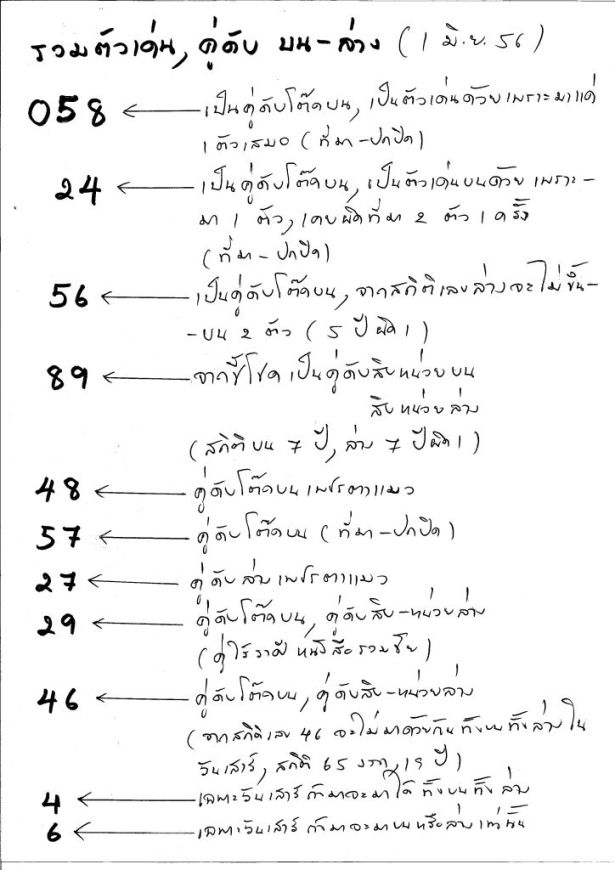 รวมตัวเด่น, คู่ดับ บน-ล่าง (1 มิ.ย. 56)
058 ← เป็นคู่ดับโต๊ดบน, เป็นตัวเด่นด้วยเพราะมาแค่
1 ตัวเสมอ (ที่มา-ปกปิด)
24 ← เป็นคู่ดับโต๊ดบน, เป็นตัวเด่นบนด้วย เพราะ-
มา 1 ตัว, เคยผิดที่มา 2 ตัว 1 ครั้ง
(ที่มา-ปกปิด)
56 ← เป็นคู่ดับโต๊ดบน, จากสถิติเลขล่างจะไม่ขึ้น-
-บน 2 ตัว (5 ปีผิด 1)
89 ← จากชี้โชค เป็นคู่ดับสิบหน่วยบน
สิบหน่วยล่าง
(สถิติบน 7 ปี, ล่าง 7 ปีผิด 1)
48 ← คู่ดับโต๊ดบนเพชรตาแมว
57 ← คู่ดับโต๊ดบน (ที่มา-ปกปิด)
27 ← คู่ดับล่างเพชรตาแมว
29 ← คู่ดับโต๊ดบน, คู่ดับสิบ-หน่วยล่าง
(คู่ไร้ราศี หนังสือรวมชัย)
46 ← คู่ดับโต๊ดบน, คู่ดับสิบ-หน่วยล่าง
(จากสถิติเลข 46 จะไม่มาด้วยกันทั้งบนทั้งล่างใน
วันเสาร์, สถิติ 65 งวด, 19 ปี)
4 ← เฉพาะวันเสาร์ ถ้ามาจะมาได้ทั้งบนทั้งล่าง
6 ← เฉพาะวันเสาร์ ถ้ามาจะมาบนหรือล่างเท่านั้น